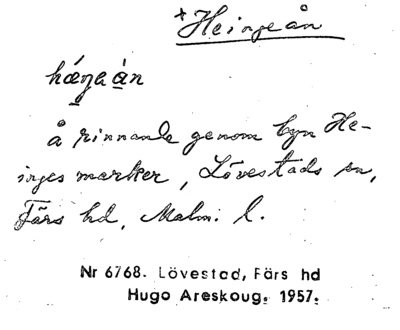 +Heingeån
hæŋeån
å rinnande genom byn He-
inges marker, Lövestads sn,
Färs hd, Malm. l.
Nr 6768. Lövestad, Färs hd
Hugo Areskoug. 1957.